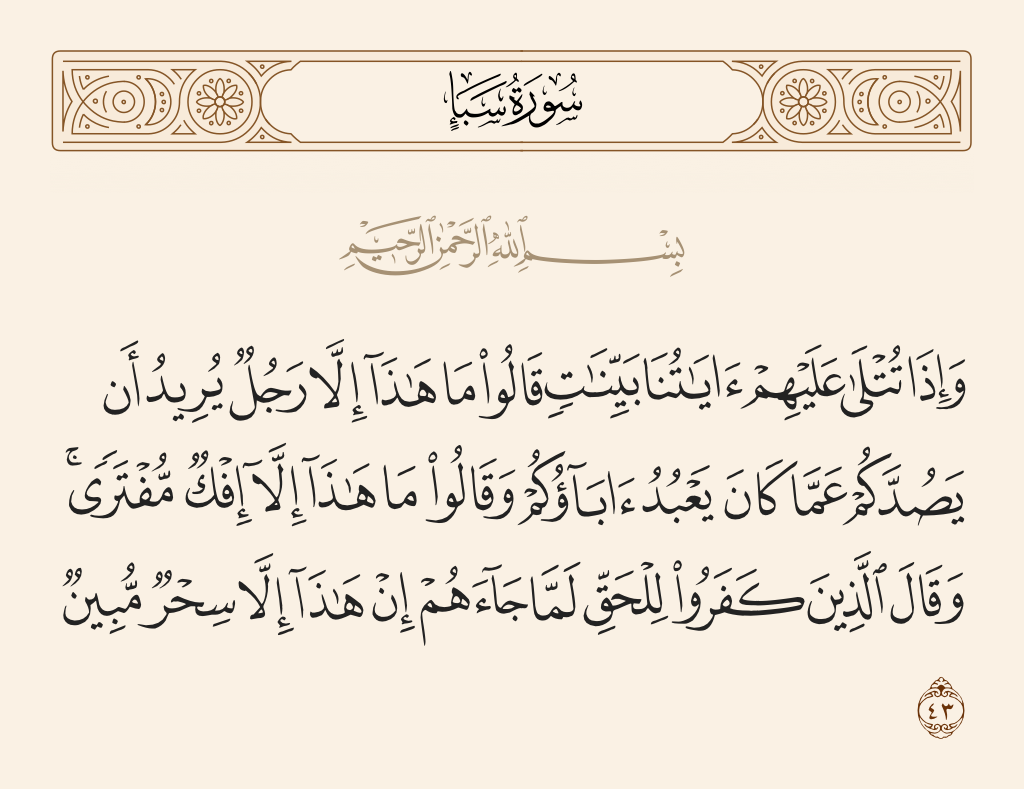 سُورَةُ سَبَإٍ
بِسْمِ ٱللَّهِ ٱلرَّحْمَٰنِ ٱلرَّحِيمِ
وَإِذَا تُتْلَىٰ عَلَيْهِمْ ءَايَٰتُنَا بَيِّنَٰتٍ قَالُوا۟ مَا هَٰذَآ إِلَّا رَجُلٌ يُرِيدُ أَن
يَصُدَّكُمْ عَمَّا كَانَ يَعْبُدُ ءَابَآؤُكُمْ وَقَالُوا۟ مَا هَٰذَآ إِلَّآ إِفْكٌ مُّفْتَرًى ۚ
وَقَالَ ٱلَّذِينَ كَفَرُوا۟ لِلْحَقِّ لَمَّا جَآءَهُمْ إِنْ هَٰذَآ إِلَّا سِحْرٌ مُّبِينٌ
٤٣